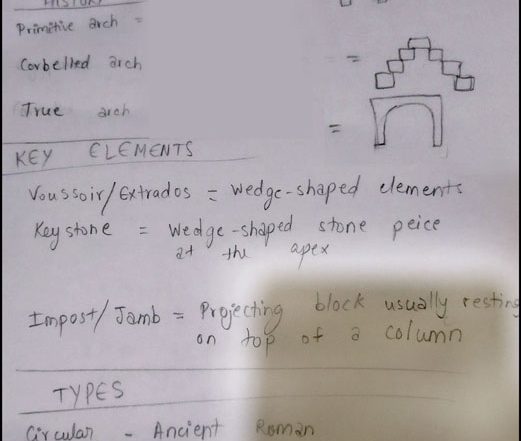 HISTORY
Primitive arch =
Corbelled arch =
True arch =
KEY ELEMENTS
Voussoir/Extrados = wedge-shaped elements
Keystone = Wedge-shaped stone peice
at the apex
Impost/Jamb = Projecting block usually resting
on top of a column
TYPES
Circular - Ancient Roman